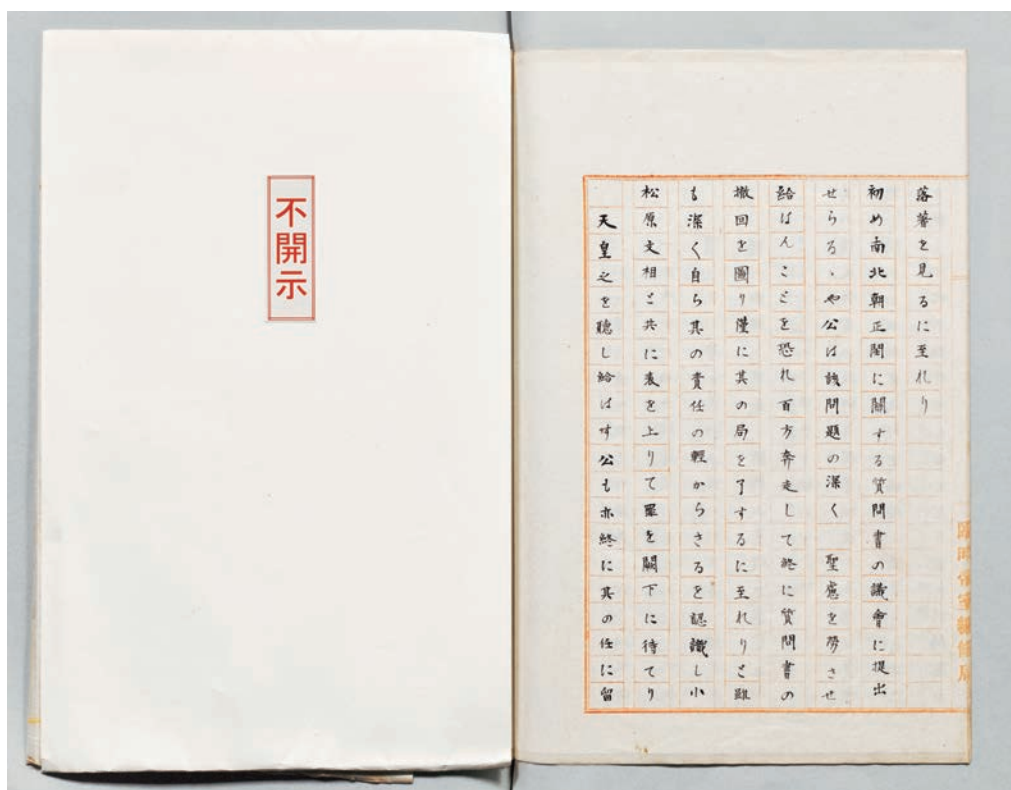 落著を見るに至れり
初め南北朝正閏に關する質問書の議會に提出
せらるゝや公は該問題の深く　聖慮を勞させ
給はんことを恐れ百方奔走して終に質問書の
撤回を圖り僅に其の局を了するに至れりと雖
も深く自ら其の責任の輕からさるを認識し小
松原文相と共に表を上りて罪を闕下に待てり
天皇之を聽し給はす公も亦終に其の任に留
不開示